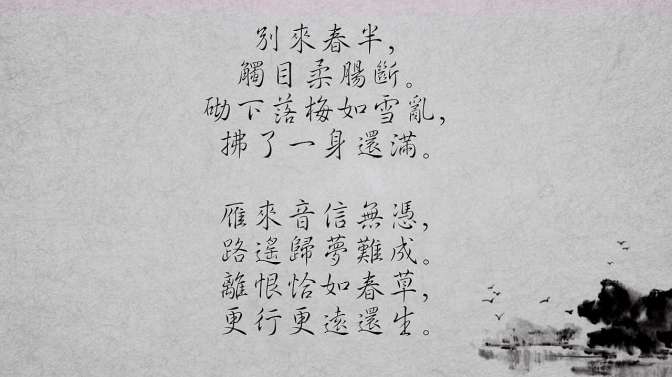 別來春半,
觸目柔腸斷。
砌下落梅如雪亂,
拂了一身還滿。
雁來音信無憑,
路遙歸夢難成。
離恨恰如春草,
更行更遠還生。